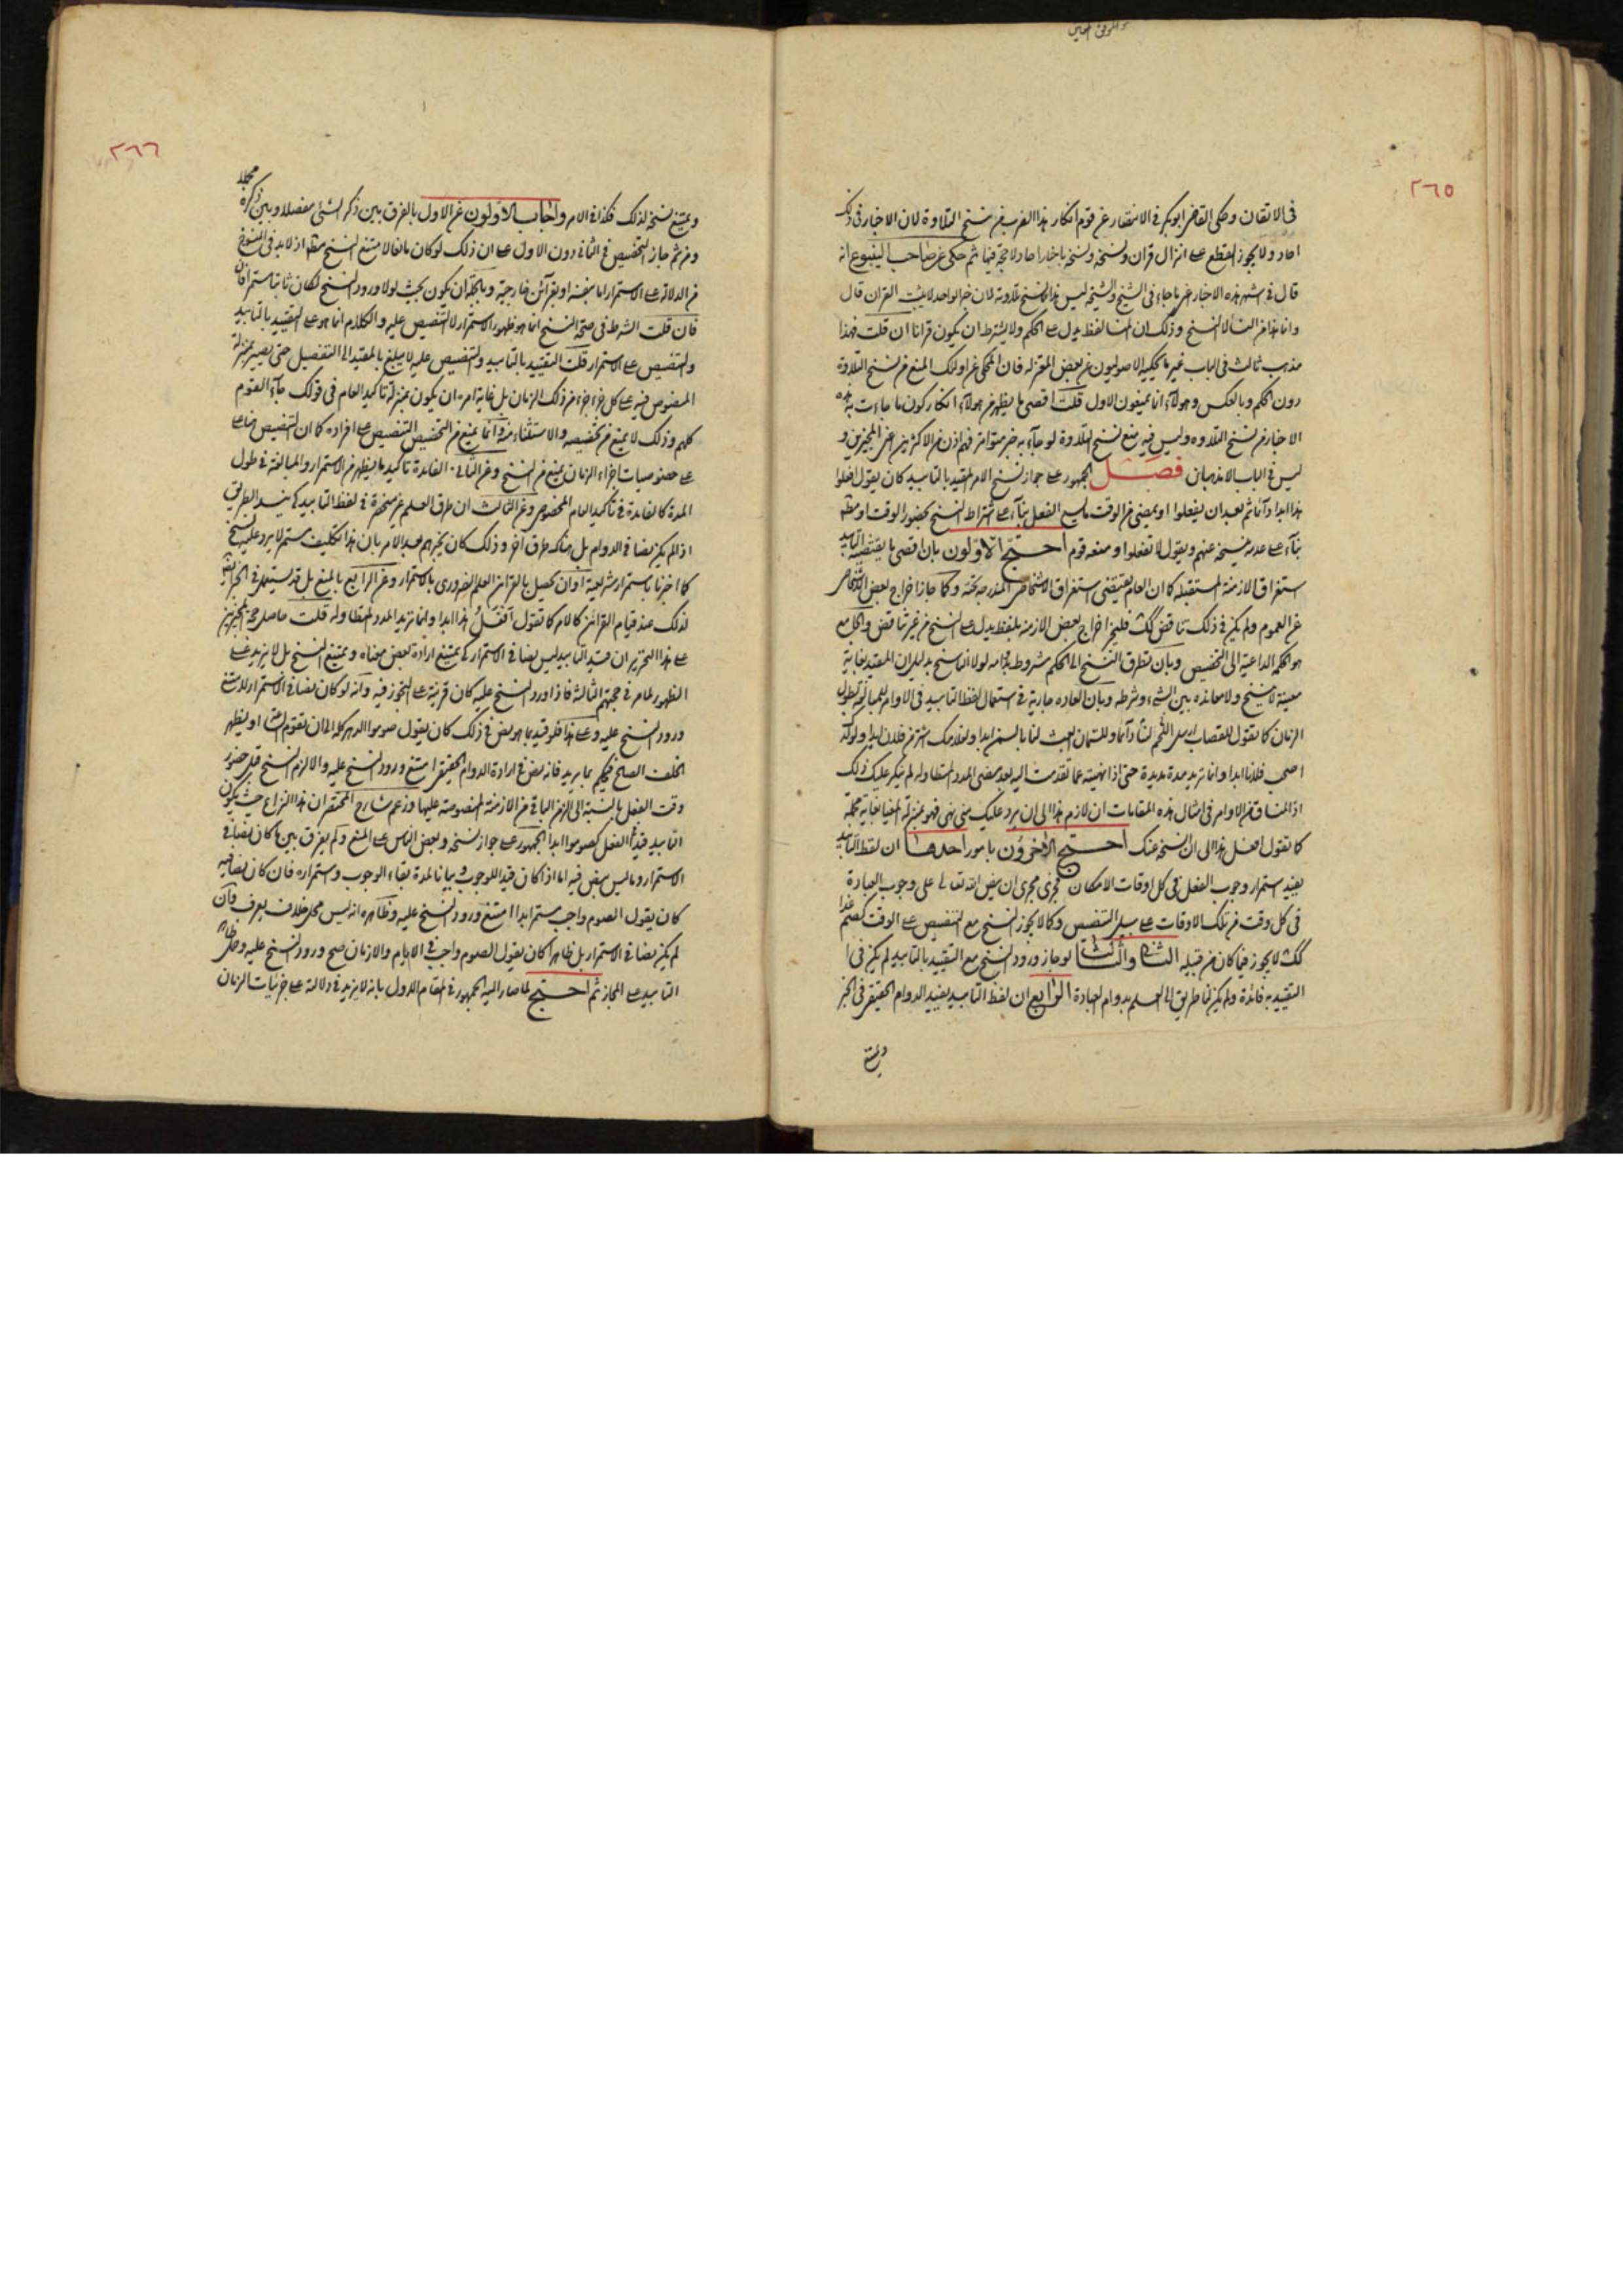 ٢٦٥
في الاتقان وحكى القاضي ابوبكر في الانتصار عن قوم انكار هذا الضرب من نسخ التلاوة لان الاخبار في ذلك
احاد ولا يجوز القطع على انزال قران ونسخه باخبار احاد لا حجة فيها ثم حكى عن صاحب الينبوع انه
قال في هذه الاخبار ما جاء في الشيخ والشيخة ليس هذا نسخ تلاوته لان خبر الواحد لا يثبت القران قال
وانما هذا من النسأ لا النسخ وذلك ان المنسأ لفظه يدل على الحكم ولا يشترط ان يكون قرانا ان قلت فهذا
مذهب ثالث في الباب غير ما يحكيه الاصوليون عن بعض المعتزلة فان المحكي عن اولئك المنع من نسخ التلاوة
دون الحكم وبالعكس وهؤلاء انما يمنعون الاول قلت اقصى ما يظهر من هؤلاء انكار كون ما جاءت به هذه
الاخبار من نسخ التلاوة وليس فيه منع نسخ التلاوة لو جاء به خبر متواتر فهم اذن من الاكثرين اعني المجيزين و
ليس في الباب الا مذهبان فصل الجمهور على جواز نسخ الامر المقيد بالتابيد كان يقول افعلوا
هذا ابدا دائما ثم بعد ان يفعلوا او يمضي من الوقت ما يسع الفعل بناء على اشتراط النسخ بحضور الوقت او مطلقا
بناء على عدمه ينسخه عنهم ويقول لا تفعلوا ومنعه قوم احتج الاولون بان اقصى ما يقتضيه التابيد
استغراق الازمنة المستقبلة كما ان العام يقتضي استغراق الاشخاص المندرجة تحته وكما جاز اخراج بعض الاشخاص
عن العموم ولم يكن في ذلك تناقض كك فليجز اخراج بعض الازمنة بلفظ يدل على النسخ من غير تناقض والجامع
هو الحكمة الداعية الى التخصيص وبان تطرق النسخ الى الحكم مشروط بدوامه لولا الناسخ بدليل ان المقيد بغاية
معينة لا ينسخ ولا معاندة بين الشيء وشرطه وبان العادة جارية في استعمال لفظ التابيد في الاوامر للمبالغة بطول
الزمان كما تقول للقصاب ارسل اللحم لنا دائما وللسمان ابعث لنا بالسمن ابدا ولخادمك اشتر من فلان ابدا ولولدك
اصحب فلانا ابدا وانما تريد مدة مديدة حتى اذا نهيته عما تقدمت اليه بعد مضي المدد المتطاولة لم ينكر عليك ذلك
اذ المنساق من الاوامر في امثال هذه المقامات ان لازم هذا الى ان يرد عليك مني نهي فهو بمنزلة المغيا بغاية مجملة
كما تقول افعل هذا الى ان انسخه عنك احتج الاخرون بامور احدها ان لفظ التابيد
يفيد استمرار وجوب الفعل في كل اوقات الامكان فجرى مجرى ان ينص الله تعالى على وجوب العبادة
في كل وقت من تلك الاوقات على سبيل التنصيص وكما لا يجوز النسخ مع التنصيص على الوقت كصم غدا
كك لا يجوز فيما كان من قبيله الثاني والثالث لو جاز ورود النسخ مع التقييد بالتابيد لم يكن في
التقييد به فائدة ولم يكن لنا طريق الى العلم بدوام العبادة الرابع ان لفظ التابيد يفيد الدوام الحقيقي في الخبر
ويمتنع
٢٦٦
ويمتنع نسخه لذلك فكذا في الامر واجاب الاولون عن الاول بالفرق بين ذكر الشيء مفصلا وبين ذكره مجملا
ومن ثم جاز التخصيص في الثاني دون الاول على ان ذلك لو كان مانعا لامتنع النسخ مطلقا اذ لابد في المنسوخ
من الدلالة على الاستمرار اما بنفسه او بقرائن خارجية وبالجملة ان يكون بحيث لولا ورود النسخ لكان ثابتا مستمرا
فان قلت الشرط في صحة النسخ انما هو ظهور الاستمرار لا التنصيص عليه والكلام انما هو على التقييد بالتابيد
والتنصيص على الاستمرار قلت التقييد بالتابيد والتنصيص عليه لا يبلغ بالمقيد الى التفصيل حتى يصير بمنزلة
المنصوص فيه على كل جزء جزء من ذلك الزمان بل غاية امره ان يكون بمنزلة تاكيد العام في قولك جاء القوم
كلهم وذلك لا يمنع من تخصيصه والاستثناء منه وانما يمنع من التخصيص التنصيص على افراده كما ان التنصيص هنا على
على خصوصيات اجزاء الزمان يمنع من النسخ وعن الثاني الفايدة تاكيد ما يظهر من الاستمرار والمبالغة في طول
المدة كالفايدة في تاكيد العام المخصوص وعن الثالث ان طرق العلم غير منحصرة في لفظ التابيد كي ينسد الطريق
اذا لم يكن نصا في الدوام بل هناك طرق اخر وذلك كان يخبرهم بعد الامر بان هذا تكليف مستمر لا يرد عليه نسخ
كما اخبرنا باستمرار شريعته او ان يحصل بالقرائن العلم الضروري بالاستمرار وعن الرابع بالمنع بل قد يستعمل في الخبر
لذلك عند قيام القرائن كالامر كما تقول افعل هذا ابدا وانما تريد المدد المتطاولة قلت حاصل حجج المجيزين
على هذا التحرير ان قيد التابيد ليس نصا في الاستمرار كي يمتنع ارادة بعض معناه ويمتنع النسخ بل لا يزيد على
الظهور كما مر في حجتهم الثالثة فاذا ورد النسخ عليه كان قرينة على التجوز فيه وانه لو كان نصا في الاستمرار لامتنع
ورود النسخ عليه وعلى هذا فلو قيد بما هو نص في ذلك كان يقول صوموا الدهر كله الى ان تقوم الساعة او يظهر
الخلف الصالح فيحكم بما يريد فانه نص في ارادة الدوام الحقيقي امتنع ورود النسخ عليه والا لزم النسخ قبل حضور
وقت الفعل بالنسبة الى الزمن الباقي من الازمنة المنصوصة عليها وزعم شارح المختصر ان هذا النزاع حيث يكون
التابيد قيدا للفعل كصوموا ابدا الجمهور على جواز نسخه وبعض الناس على المنع ولم يفرق بين ما كان نصا في
الاستمرار وما ليس بنص فيه اما اذا كان قيدا للوجوب وبيانا لمدة بقاء الوجوب واستمراره فان كان نصا فيه
كان يقول الصوم واجب مستمر ابدا امتنع ورود النسخ عليه وظاهره انه ليس محل خلاف يعرف وان
لم يكن نصا في الاستمرار بل ظاهرا كان يقول الصوم واجب في الايام والازمان صح ورود النسخ عليه وحمل
التابيد على المجاز ثم احتج لما صار اليه الجمهور في المقام الاول بانه لا يزيد في دلالته على جزئيات الزمان